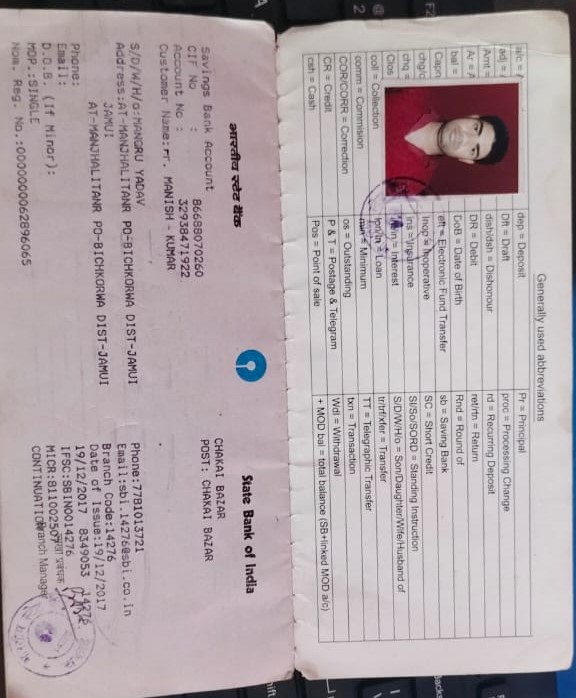 Generally used abbreviations
a/c =
adj =
Amt =
Ar =
bal =
Capn
chg/c
chq =
Clos
coll = Collection
comm = Commision
COR/CORR = Correction
CR = Credit
csh = Cash
dep = Deposit
Dft = Draft
dish/dsh = Dishonour
DR = Debit
DoB = Date of Birth
eft = Electronic Fund Transfer
Inop = Inoperative
ins = Insurance
Int/in = Interest
lon/ln = Loan
min = Minimum
os = Outstanding
P & T = Postage & Telegram
Pos = Point of sale
Pr = Principal
proc = Processing Change
rd = Recurring Deposit
ret/rtn = Return
Rnd = Round of
sb = Saving Bank
SC = Short Credit
SI/So/SORD = Standing Instruction
S/D/W/H/o = Son/Daughter/Wife/Husband of
tr/trf/xfer = Transfer
TT = Telegraphic Transfer
txn = Transaction
Wdl = Withdrawal
+ MOD bal = total balance (SB+linked MOD a/c)
भारतीय स्टेट बैंक
State Bank of India
CHAKAI BAZAR
POST: CHAKAI BAZAR
Savings Bank Account
CIF No : 86688070260
Account No : 32938471922
Customer Name: MANISH - KUMAR
S/D/W/H/o: MANGRU YADAV
Address: AT-MANJHALITANR PO-BICHKORWA DIST-JAMUI
JAMUI
AT-MANJHALITANR PO-BICHKORWA DIST-JAMUI
Phone:
Email:
D.O.B. (If Minor):
MOP.: SINGLE
Nom. Reg. No.:0000000062896065
Phone: 7781013721
Email: sbi.14276@sbi.co.in
Branch Code:14276
Date of Issue:19/12/2017
19/12/2017 8349053 14276
IFSC:SBIN0014276
MICR:811002507
CONTINUATION
Branch Manager